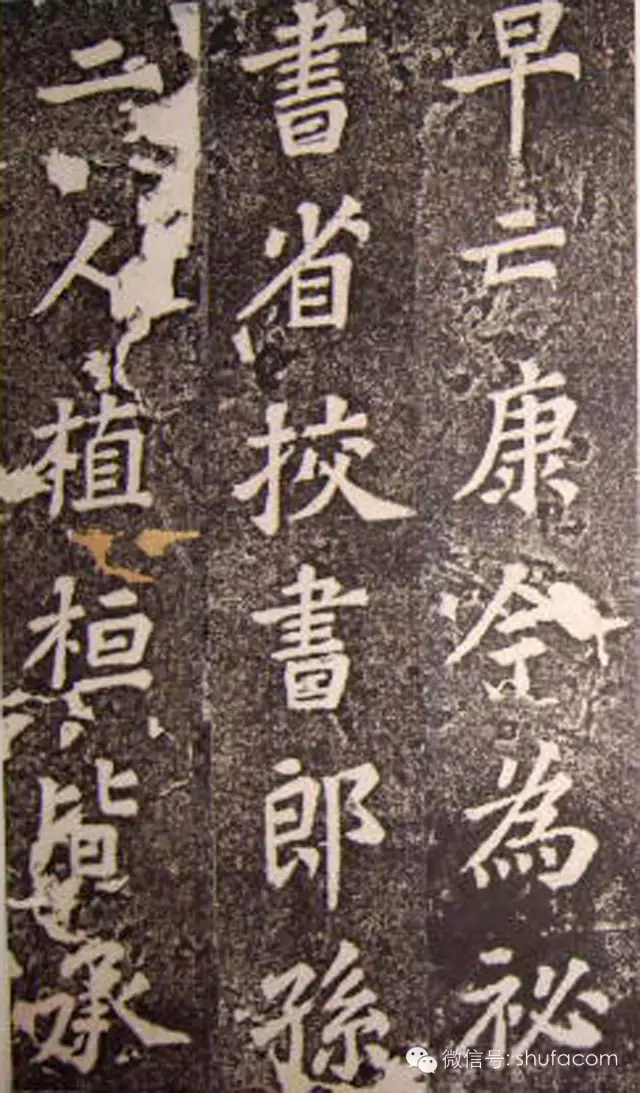 早亡康今為祕
書省挍書郎孫
二人植桓皆承
微信号: shufacom